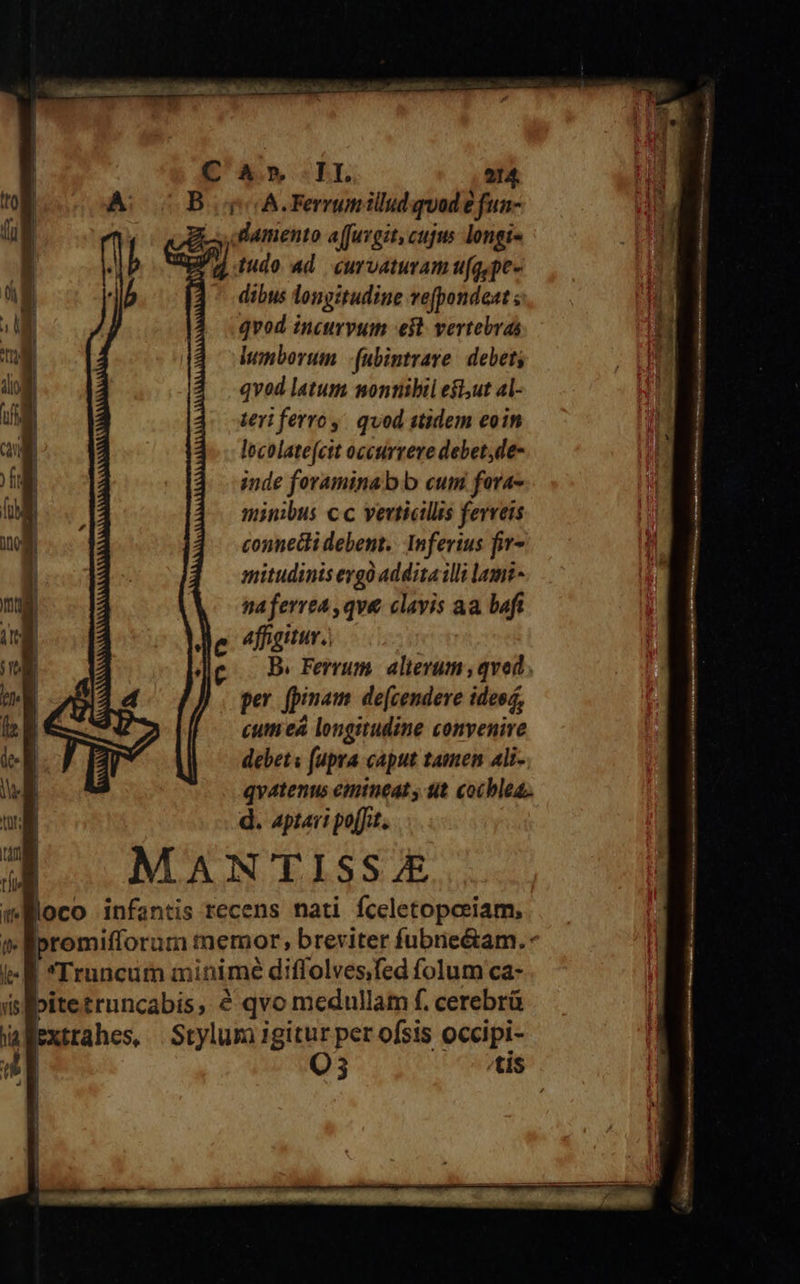 CAP. II. 214
A B A. Ferrum illud quod è fun-
damento aſſurgit, cujus longi-
tudo ad curvaturam uſq, pe-
dibus longitudine reſpondeat;
qvod incurvum eſt vertebras
lumborum ſubintrare debet;
qvod latum nonnihil eſt, ut al-
teri ferro, quod itidem eo in
loco lateſcit occurrere debet, de-
inde foramina b b cum fora-
minibus c c verticillis ferreis
connecti debent. Inferius fir-
mitudinis ergò addita illi lami-
na ferrea, qvæ clavis a a baſi
affigitur.
B. Ferrum alterum, qvod
per ſpinam deſcendere ideoq́,
cum eâ longitudine convenire
debet: ſupra caput tamen ali-
qvatenus emineat, ut cochlea
d. aptari poſſit.
b
b
c
c
d
a
MANTISSÆ
loco infantis recens nati ſceletopœiam,
promiſſorum memor, breviter ſubnectam.
*Truncum minimè diſſolves, ſed ſolum ca-
pite truncabis, è qvo medullam ſ. cerebrũ
extrahes, Stylum igitur per oſsis occipi-
O 3 tis